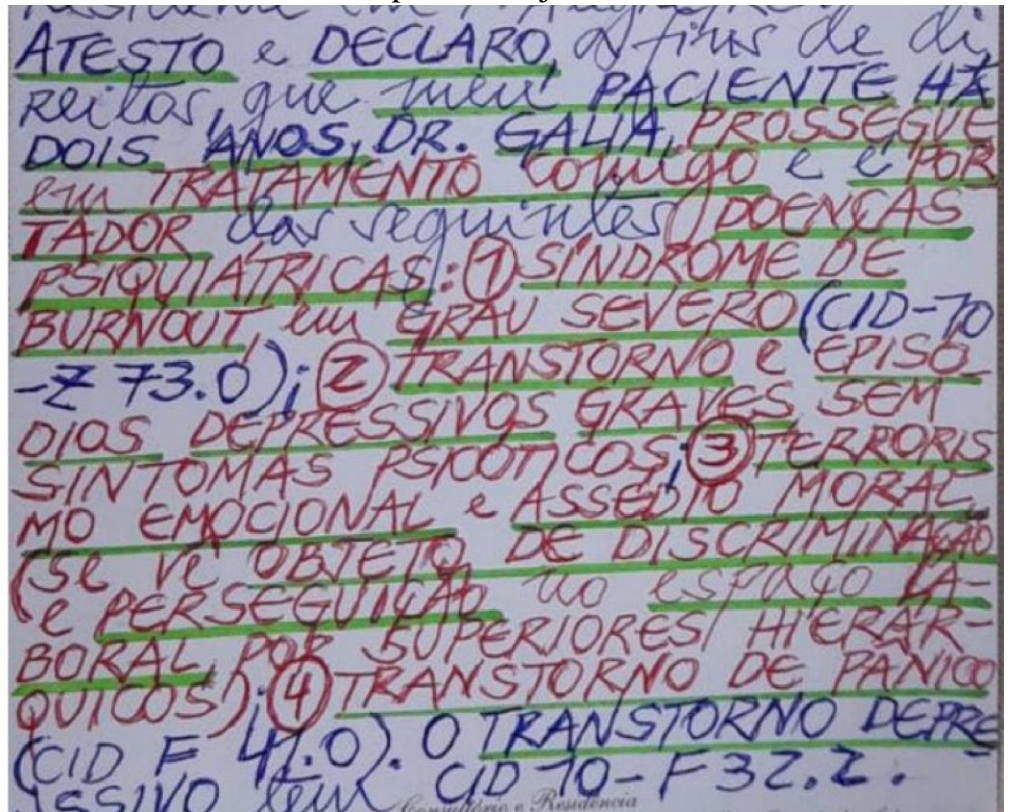 ATESTO e DECLARO, a fins de di
reitos, que meu PACIENTE HÁ
DOIS ANOS, DR. GALIA, PROSSEGUE
em TRATAMENTO comigo e é POR
TADOR das seguintes DOENÇAS
PSIQUIÁTRICAS: 1 SÍNDROME DE
BURNOUT, em GRAU SEVERO (CID-10
-Z 73.0); 2 TRANSTORNO e EPISÓ
DIOS DEPRESSIVOS GRAVES SEM
SINTOMAS PSICÓTICOS; 3 TERRORIS
MO EMOCIONAL e ASSÉDIO MORAL
(se vê OBJETO DE DISCRIMINAÇÃO
e PERSEGUIÇÃO no espaço LA-
BORAL, POR SUPERIORES HIERÁR-
QUICOS); 4 TRANSTORNO DE PÂNICO
(CID F 41.0). O TRANSTORNO DEPRE
SSIVO tem CID 10-F 32.2.
Consultório e Residência